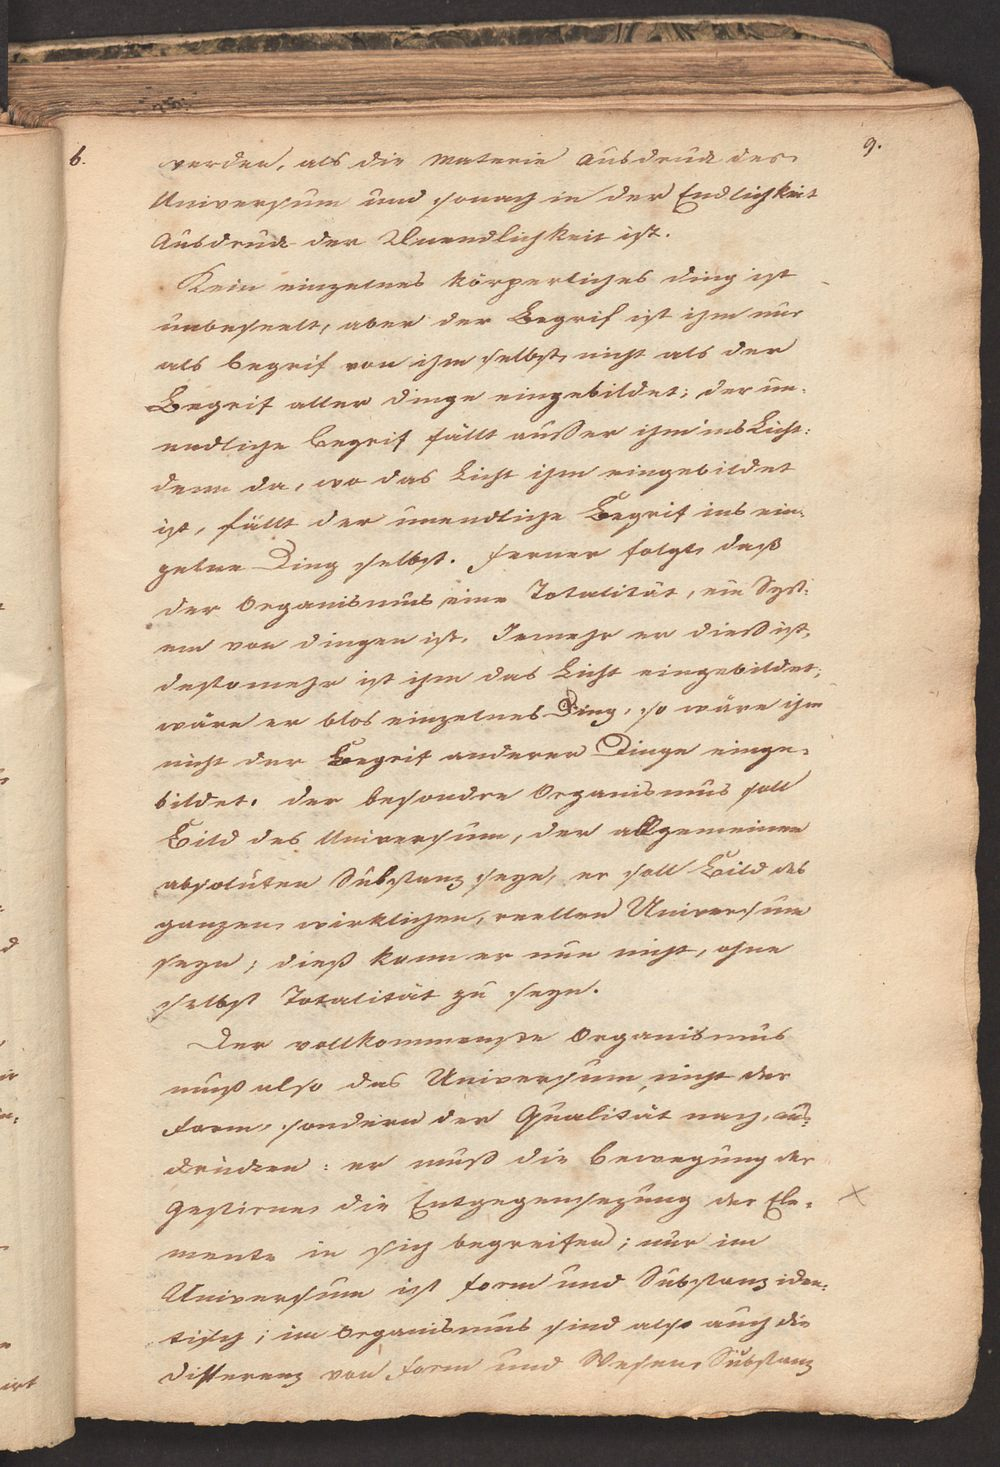 6.
9.
werden, als die Materie Ausdruck des
Universum und sonach in der Endlichkeit
Ausdruck der Unendlichkeit ist.
Kein einzelnes körperliches Ding ist
unbeseelt, aber der Begrif ist ihm nur
als Begrif von ihm selbst, nicht als der
Begrif aller Dinge eingebildet; der un-
endliche Begrif fällt außer ihm ins Licht:
denn da, wo das Licht ihm eingebildet
ist, fällt der unendliche Begrif ins ein-
zelne Ding selbst. Ferner folgt, daß
der Organismus eine Totalität, ein Syst-
em von Dingen ist. Jemehr er dieß ist,
destomehr ist ihm das Licht eingebildet;
wäre er blos einzelnes Ding, so wäre ihm
nicht der Begrif anderer Dinge einge-
bildet. Der besondre Organismus soll
Bild des Universum, der allgemeinen
absoluten Substanz seyn, er soll Bild des
ganzen, wirklichen, reellen Universum
seyn; dieß kann er nun nicht, ohne
selbst Totalität zu seyn.
Der vollkommenste Organismus
muß also das Universum, nicht der
Form, sondern der Qualität nach, aus-
drücken: er muß die Bewegung der
Gestirne, die Entgegensezung der Ele-
mente in sich begreifen; nur im
Universum ist Form und Substanz iden-
tisch; im Organismus sind also auch die
Differenz von Form und Wesen, Substanz